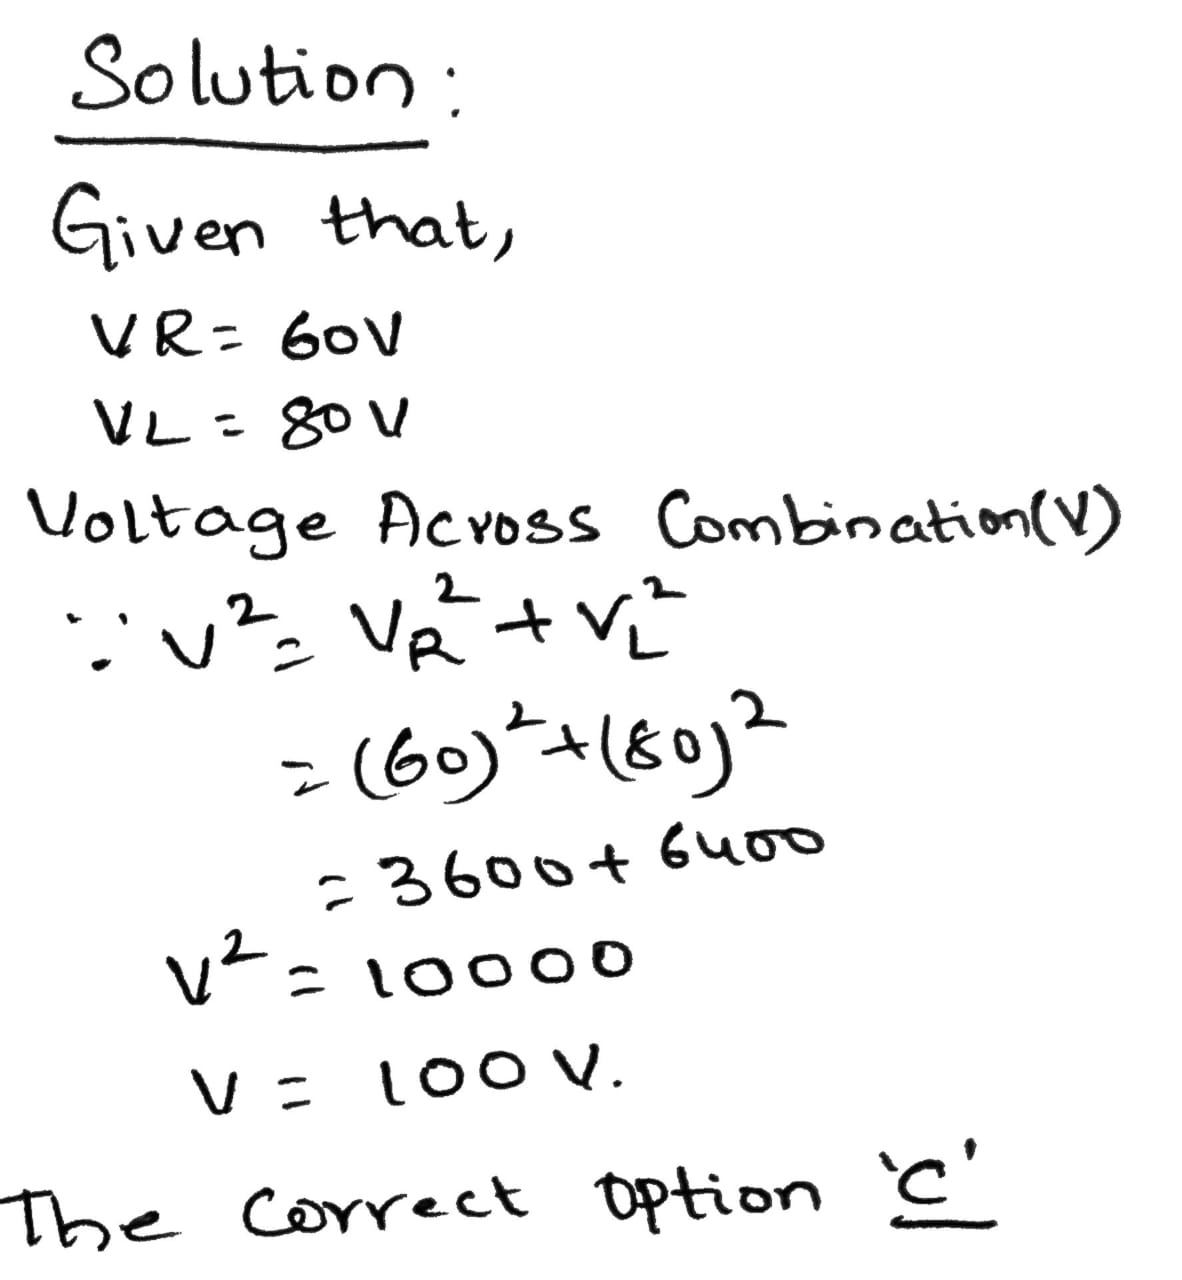 Solution:
Given that,
VR = 60V
VL = 80V
Voltage Across Combination(V)
∵ V² = V_R² + V_L²
= (60)² + (80)²
= 3600 + 6400
V² = 10000
V = 100 V.
The Correct option 'C'